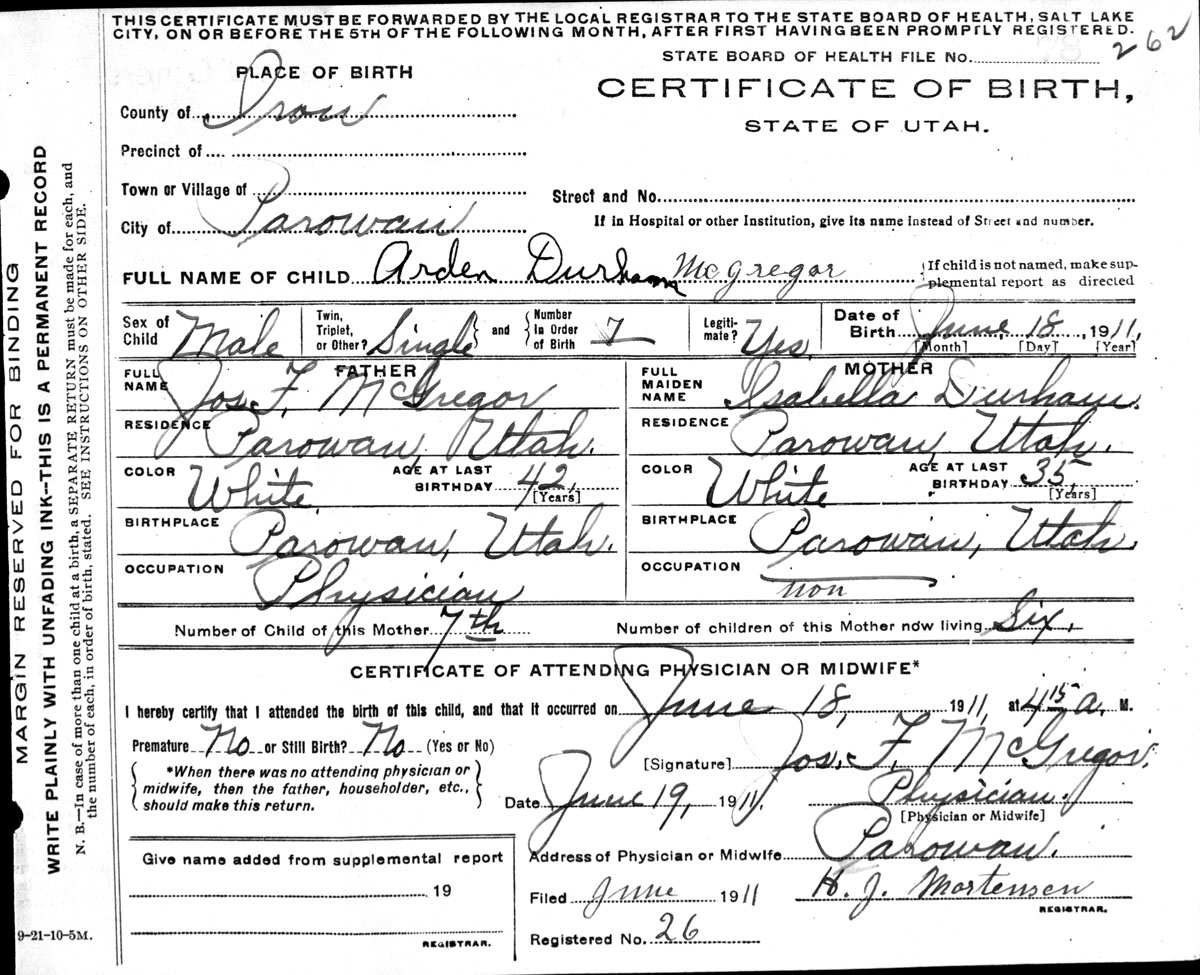 THIS CERTIFICATE MUST BE FORWARDED BY THE LOCAL REGISTRAR TO THE STATE BOARD OF HEALTH, SALT LAKE
CITY, ON OR BEFORE THE 5TH OF THE FOLLOWING MONTH, AFTER FIRST HAVING BEEN PROMPTLY REGISTERED.
STATE BOARD OF HEALTH FILE No. 262
PLACE OF BIRTH
CERTIFICATE OF BIRTH,
STATE OF UTAH.
County of Iron
Precinct of
Town or Village of
Street and No.
City of Parowan
If in Hospital or other Institution, give its name instead of Street and number.
FULL NAME OF CHILD Arden Durham McGregor
{If child is not named, make sup-
plemental report as directed
Sex of Child Male
Twin, Triplet, or Other? Single } and { Number in Order of Birth 7
Legiti-mate? Yes.
Date of Birth June, 18, 1911,
[Month] [Day] [Year]
FATHER
FULL NAME Jos. F. McGregor
RESIDENCE Parowan, Utah.
COLOR White. AGE AT LAST BIRTHDAY 42, [Years]
BIRTHPLACE Parowan, Utah.
OCCUPATION Physician
MOTHER
FULL MAIDEN NAME Isabella Durham.
RESIDENCE Parowan, Utah.
COLOR White AGE AT LAST BIRTHDAY 35, [Years]
BIRTHPLACE Parowan, Utah.
OCCUPATION non
Number of Child of this Mother 7th
Number of children of this Mother now living Six.
CERTIFICATE OF ATTENDING PHYSICIAN OR MIDWIFE*
I hereby certify that I attended the birth of this child, and that it occurred on June 18, 1911, at 4 15 a. M.
Premature No or Still Birth? No (Yes or No)
{ *When there was no attending physician or
midwife, then the father, householder, etc.,
should make this return. }
[Signature] Jos. F. McGregor.
Date June 19, 1911, Physician.
[Physician or Midwife]
Address of Physician or Midwife Parowan.
Give name added from supplemental report
19
REGISTRAR.
Filed June 1911 H. J. Mortensen
REGISTRAR.
Registered No. 26
9-21-10-5M.
MARGIN RESERVED FOR BINDING
WRITE PLAINLY WITH UNFADING INK—THIS IS A PERMANENT RECORD
N. B.—In case of more than one child at a birth, a SEPARATE RETURN must be made for each, and
the number of each, in order of birth, stated. SEE INSTRUCTIONS ON OTHER SIDE.